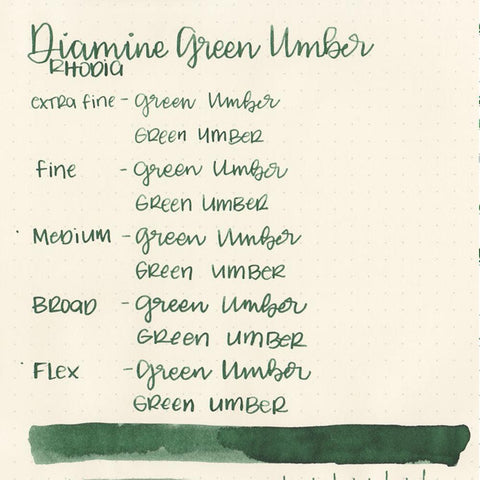 Diamine Green Umber
RHODIA
extra fine - Green Umber
GREEN UMBER
fine - Green Umber
GREEN UMBER
MEDIUM - Green Umber
GREEN UMBER
BROAD - Green Umber
GREEN UMBER
FLEX - Green Umber
GREEN UMBER